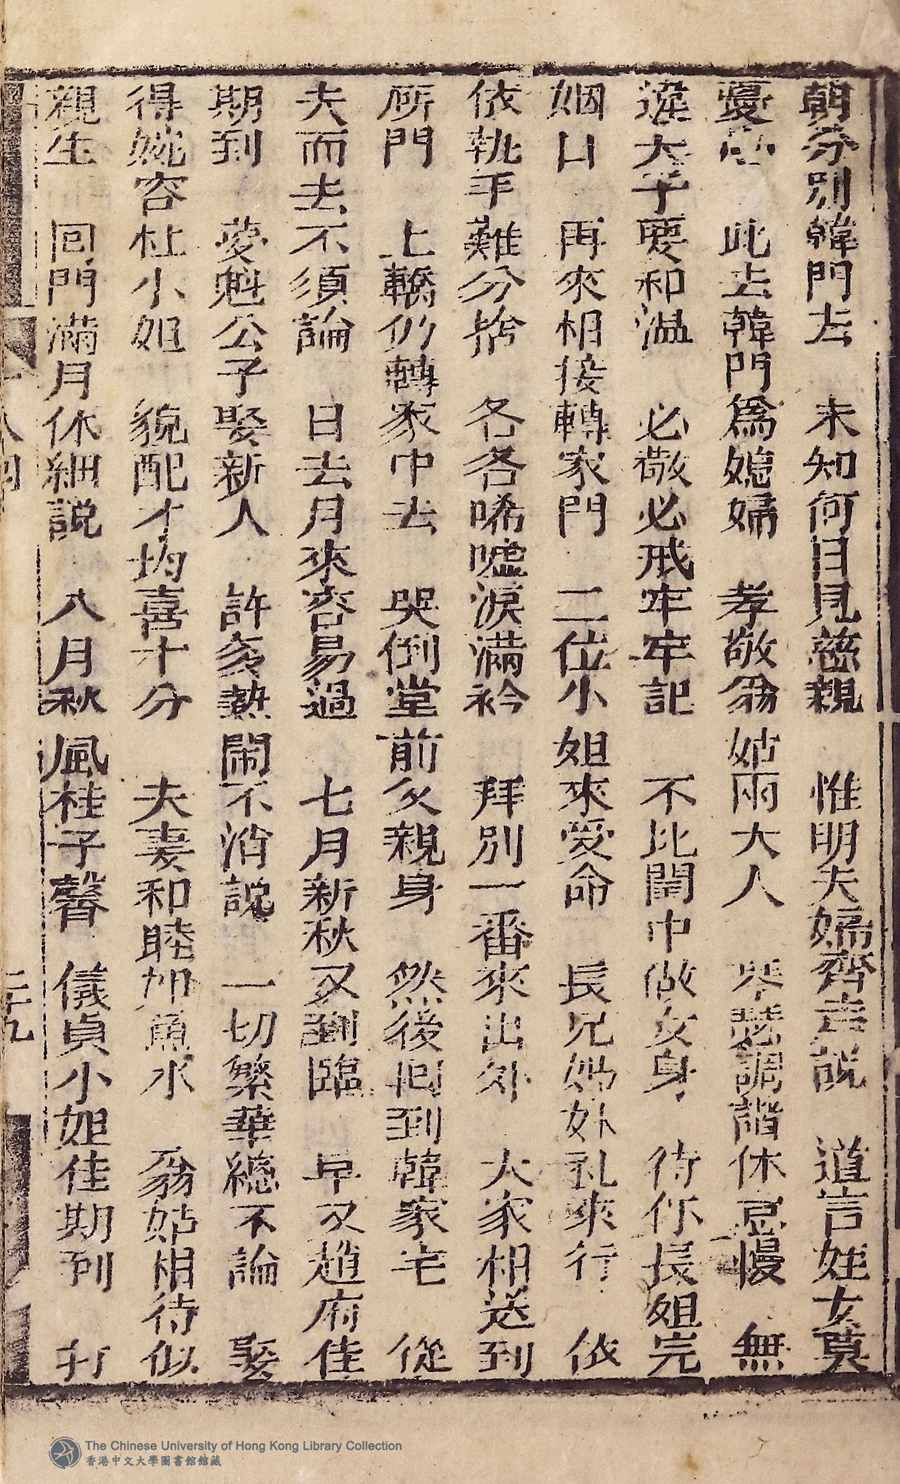 朝分別韓門去　未知何日見慈親　惟明夫婦齊去說　道言姪女莫
憂心　此去韓門爲媳婦　孝敬翁姑兩大人　琴瑟調諧休怠慢　無
違夫子要和溫　必敬必戒牢牢記　不比閨中做女身　待你長姐完
姻日　再來相接轉家門　二位小姐來受命　長兄嫂外礼來行　依
依執手難分捨　各各唏噓淚滿衿　拜別一番來出外　大家相送到
所門　上轎仍轉家中去　哭倒堂前父親身　然後回到韓家宅　從
夫而去不須論　日去月來容易過　七月新秋又到臨　早又趙府佳
期到　夢魁公子娶新人　許多熱鬧不消說　一切繁華總不論　娶
得婉容杜小姐　貌配才均喜十分　夫妻和睦如魚水　翁姑相待似
親生　回門滿月休細說　八月秋風桂子馨　儀貞小姐佳期到　打
八回
二十九
The Chinese University of Hong Kong Library Collection
香港中文大學圖書館館藏